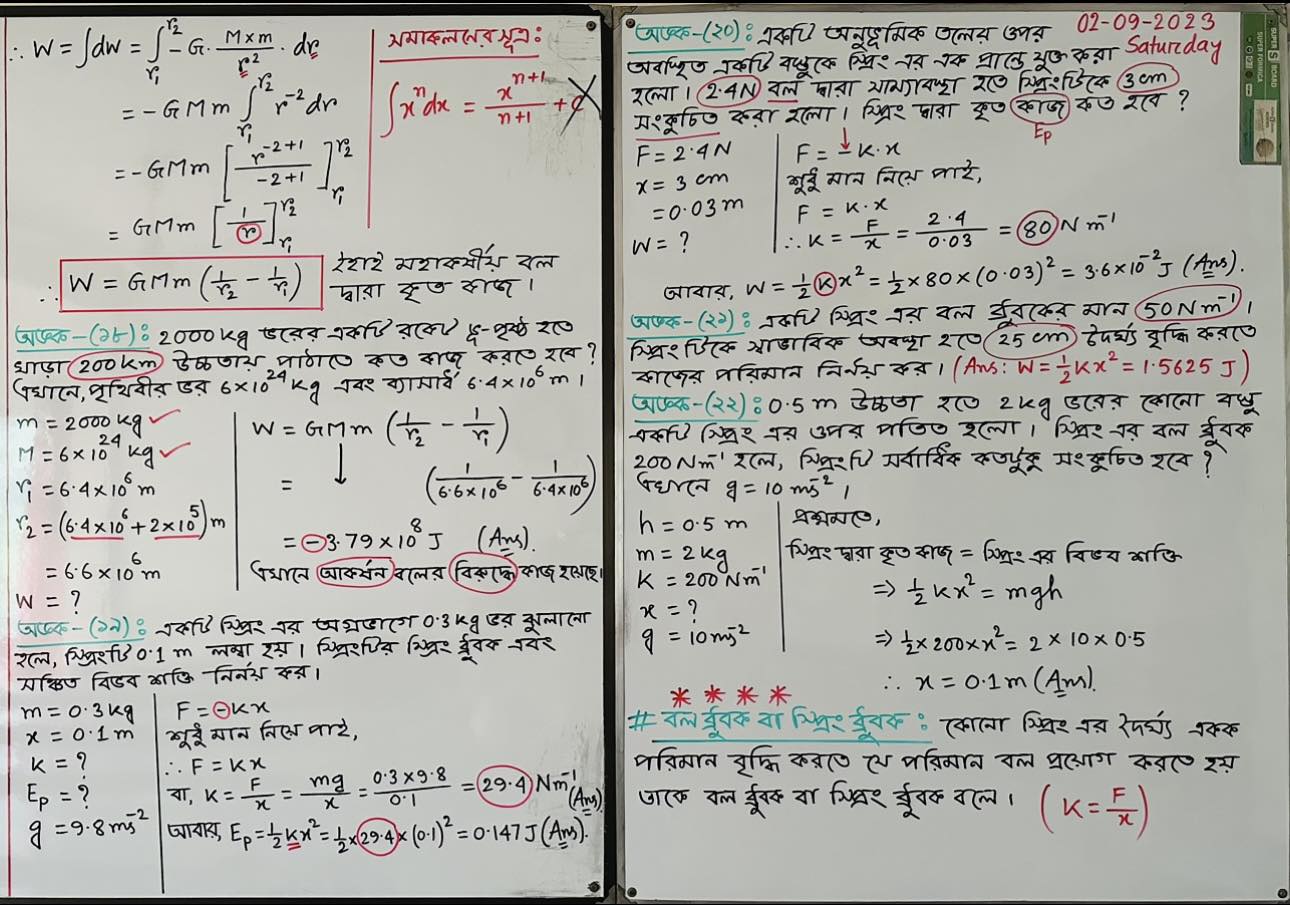 ∴ W = ∫dw = ∫_{r₁}^{r₂} -G · (M×m)/r² · dr
= -GMm ∫_{r₁}^{r₂} r⁻² dr
= -GMm [r^{-2+1}/(-2+1)]_{r₁}^{r₂}
= GMm [1/r]_{r₁}^{r₂}
∴ W = GMm (1/r₂ - 1/r₁)
ইহাই মহাকর্ষীয় বল
দ্বারা কৃত কাজ।
সমাকলনের সূত্র:
∫xⁿdx = x^{n+1}/(n+1) + c
অংক-(১৮): 2000 kg ভরের একটি রকেট ভূ-পৃষ্ঠ হতে
খাড়া 200 km উচ্চতায় পাঠাতে কত কাজ করতে হবে?
এখানে, পৃথিবীর ভর 6×10²⁴ kg এবং ব্যাসার্ধ 6.4×10⁶ m।
m = 2000 kg
M = 6×10²⁴ kg
r₁ = 6.4×10⁶ m
r₂ = (6.4×10⁶ + 2×10⁵) m
= 6.6×10⁶ m
W = ?
W = GMm (1/r₂ - 1/r₁)
= ↓ (1/6.6×10⁶ - 1/6.4×10⁶)
= -3.79×10⁸ J (Ans).
এখানে আকর্ষন বলের বিরুদ্ধে কাজ হয়েছে।
অংক-(১৯): একটি স্প্রিং এর অগ্রভাগে 0.3 kg ভর ঝুলানো
হলে, স্প্রিংটি 0.1 m লম্বা হয়। স্প্রিংটির স্প্রিং ধ্রুবক এবং
সঞ্চিত বিভব শক্তি নির্নয় কর।
m = 0.3 kg
x = 0.1 m
K = ?
Eₚ = ?
g = 9.8 ms⁻²
F = -Kx
শুধু মান নিয়ে পাই,
∴ F = Kx
বা, K = F/x = mg/x = (0.3×9.8)/0.1 = 29.4 Nm⁻¹ (Ans)
আবার, Eₚ = ½Kx² = ½×29.4×(0.1)² = 0.147 J (Ans).
02-09-2023
Saturday
অংক-(২০): একটি অনুভূমিক তলের ওপর
অবস্থিত একটি বস্তুকে স্প্রিং এর এক প্রান্তে যুক্ত করা
হলো। 2.4N বল দ্বারা সাম্যাবস্থা হতে স্প্রিংটিকে 3 cm
সংকুচিত করা হলো। স্প্রিং দ্বারা কৃত কাজ কত হবে?
Eₚ
F = 2.4 N
x = 3 cm
= 0.03 m
W = ?
F = -K.x
শুধু মান নিয়ে পাই,
F = K.x
∴ K = F/x = 2.4/0.03 = 80 N m⁻¹
আবার, W = ½Kx² = ½×80×(0.03)² = 3.6×10⁻² J (Ans).
অংক-(২১): একটি স্প্রিং এর বল ধ্রুবকের মান 50 Nm⁻¹।
স্প্রিংটিকে স্বাভাবিক অবস্থা হতে 25 cm দৈর্ঘ্য বৃদ্ধি করতে
কাজের পরিমান নির্নয় কর। (Ans: W = ½Kx² = 1.5625 J)
অংক-(২২): 0.5 m উচ্চতা হতে 2 kg ভরের কোনো বস্তু
একটি স্প্রিং এর ওপর পতিত হলো। স্প্রিং এর বল ধ্রুবক
200 Nm⁻¹ হলে, স্প্রিংটি সর্বাধিক কতটুকু সংকুচিত হবে?
এখানে g = 10 ms⁻²।
h = 0.5 m
m = 2 kg
K = 200 Nm⁻¹
x = ?
g = 10 ms⁻²
প্রশ্নমতে,
স্প্রিং দ্বারা কৃত কাজ = স্প্রিং এর বিভব শক্তি
⇒ ½Kx² = mgh
⇒ ½×200×x² = 2×10×0.5
∴ x = 0.1 m (Ans).
* * * *
# বল ধ্রুবক বা স্প্রিং ধ্রুবক: কোনো স্প্রিং এর দৈর্ঘ্য একক
পরিমান বৃদ্ধি করতে যে পরিমান বল প্রয়োগ করতে হয়
তাকে বল ধ্রুবক বা স্প্রিং ধ্রুবক বলে। (K = F/x)